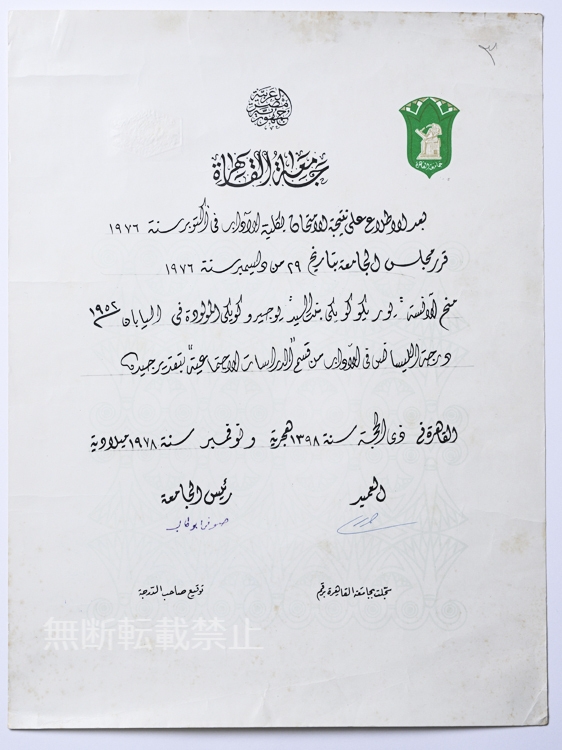 ٣
جمهورية
مصر
العربية
جامعة القاهرة
جامعة القاهرة
بعد الاطلاع على نتيجة الامتحان بكلية الآداب فى أكتوبر سنة ١٩٧٦
قرر مجلس الجامعة بتاريخ ٢٩ من ديسمبر سنة ١٩٧٦
منح الآنسة "يوريكو كويكى بنت السيد يوجيرو كويكى" المولودة فى اليابان ١٩٥٢م
درجة الليسانس فى الآداب من قسم "الدراسات الاجتماعية" بتقدير جيد
القاهرة فى ذى الحجة سنة ١٣٩٨ هجرية ونوفمبر سنة ١٩٧٨ ميلادية
العميد
رئيس الجامعة
صوفى أبو طالب
سجلت بجامعة القاهرة برقم
توقيع صاحب الدرجة
無断転載禁止